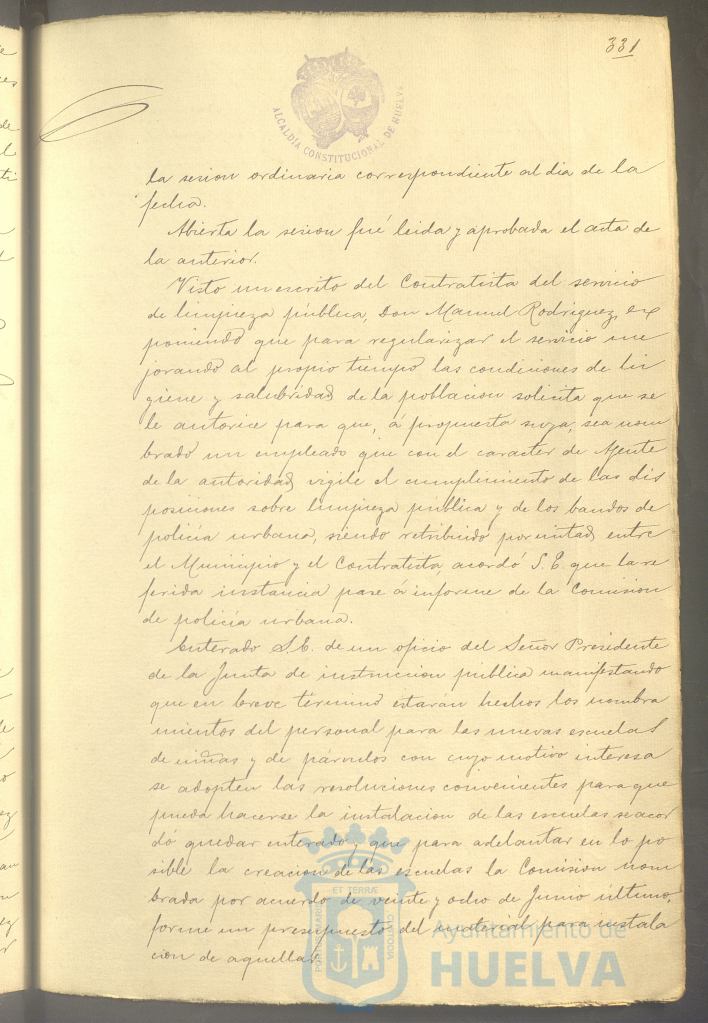 331
ALCALDÍA CONSTITUCIONAL DE HUELVA
la sesion ordinaria correspondiente al dia de la
fecha.
Abierta la sesion fué leida y aprobada el acta de
la anterior.
Visto un escrito del Contratista del servicio
de limpieza pública, Don Manuel Rodriguez, ex
poniendo que para regularizar el servicio me
jorando al propio tiempo las condiciones de hi
giene y salubridad de la poblacion solicita que se
le autorice para que, á propuesta suya, sea nom
brado un empleado que con el caracter de Agente
de la autoridad, vigile el cumplimiento de las dis
posiciones sobre limpieza pública y de los bandos de
policía urbana, siendo retribuido por mitad entre
el Municipio y el Contratista, acordó S.E. que la re
ferida instancia pase á informe de la Comision
de policía urbana.
Enterado S.E. de un oficio del Señor Presidente
de la Junta de instruccion pública manifestando
que en breve término estarán hechos los nombra
mientos del personal para las nuevas escuelas
de niñas y de párvulos con cuyo motivo interesa
se adopten las resoluciones convenientes para que
pueda hacerse la instalacion de las escuelas se acor
dó quedar enterado y que para adelantar en lo po
sible la creacion de las escuelas la Comision nom
brada por acuerdo de veinte y ocho de Junio último,
forme un presupuesto del material para instala
cion de aquellas.
PORTUS MARIS ET TERRÆ CUSTODIA
Ayuntamiento de
HUELVA